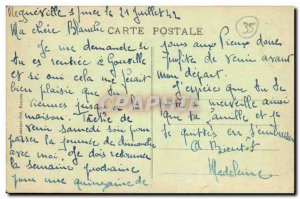 s/mer le 21 Juillet 42
35
Ma chère Blanche
CARTE POSTALE
Je me demande si
tu es rentrée à
et si oui cela me ferait
bien plaisir que tu
viennes jusqu'à
maison. Tâche de
venir samedi soir pour
passer la journée de dimanche
avec moi je dois retourner
la semaine prochaine
pour une quinzaine de
jours aux Pieux donc
profite de venir avant
mon départ.
J'espère que tu
merveille ainsi
que ta famille et je
te quittes en t'embrassant
A Bientôt
Madeleine